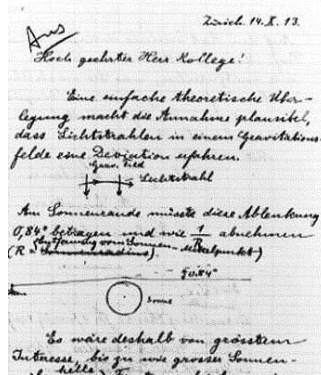 Zürich. 14. X. 13.
Hoch geehrter Herr Kollege!
Eine einfache theoretische Über-
legung macht die Annahme plausibel,
dass Lichtstrahlen in einem Gravitations-
felde eine Deviation erfahren.
Grav. Feld
Lichtstrahl
Am Sonnenrande müsste diese Ablenkung
0,84" betragen und wie 1/R abnehmen
(R = Sonnenradius).
Entfernung vom Sonnen-Mittelpunkt)
0.84"
Sonne
Es wäre deshalb von grösstem
Interesse, bis zu wie grosser Sonnen-